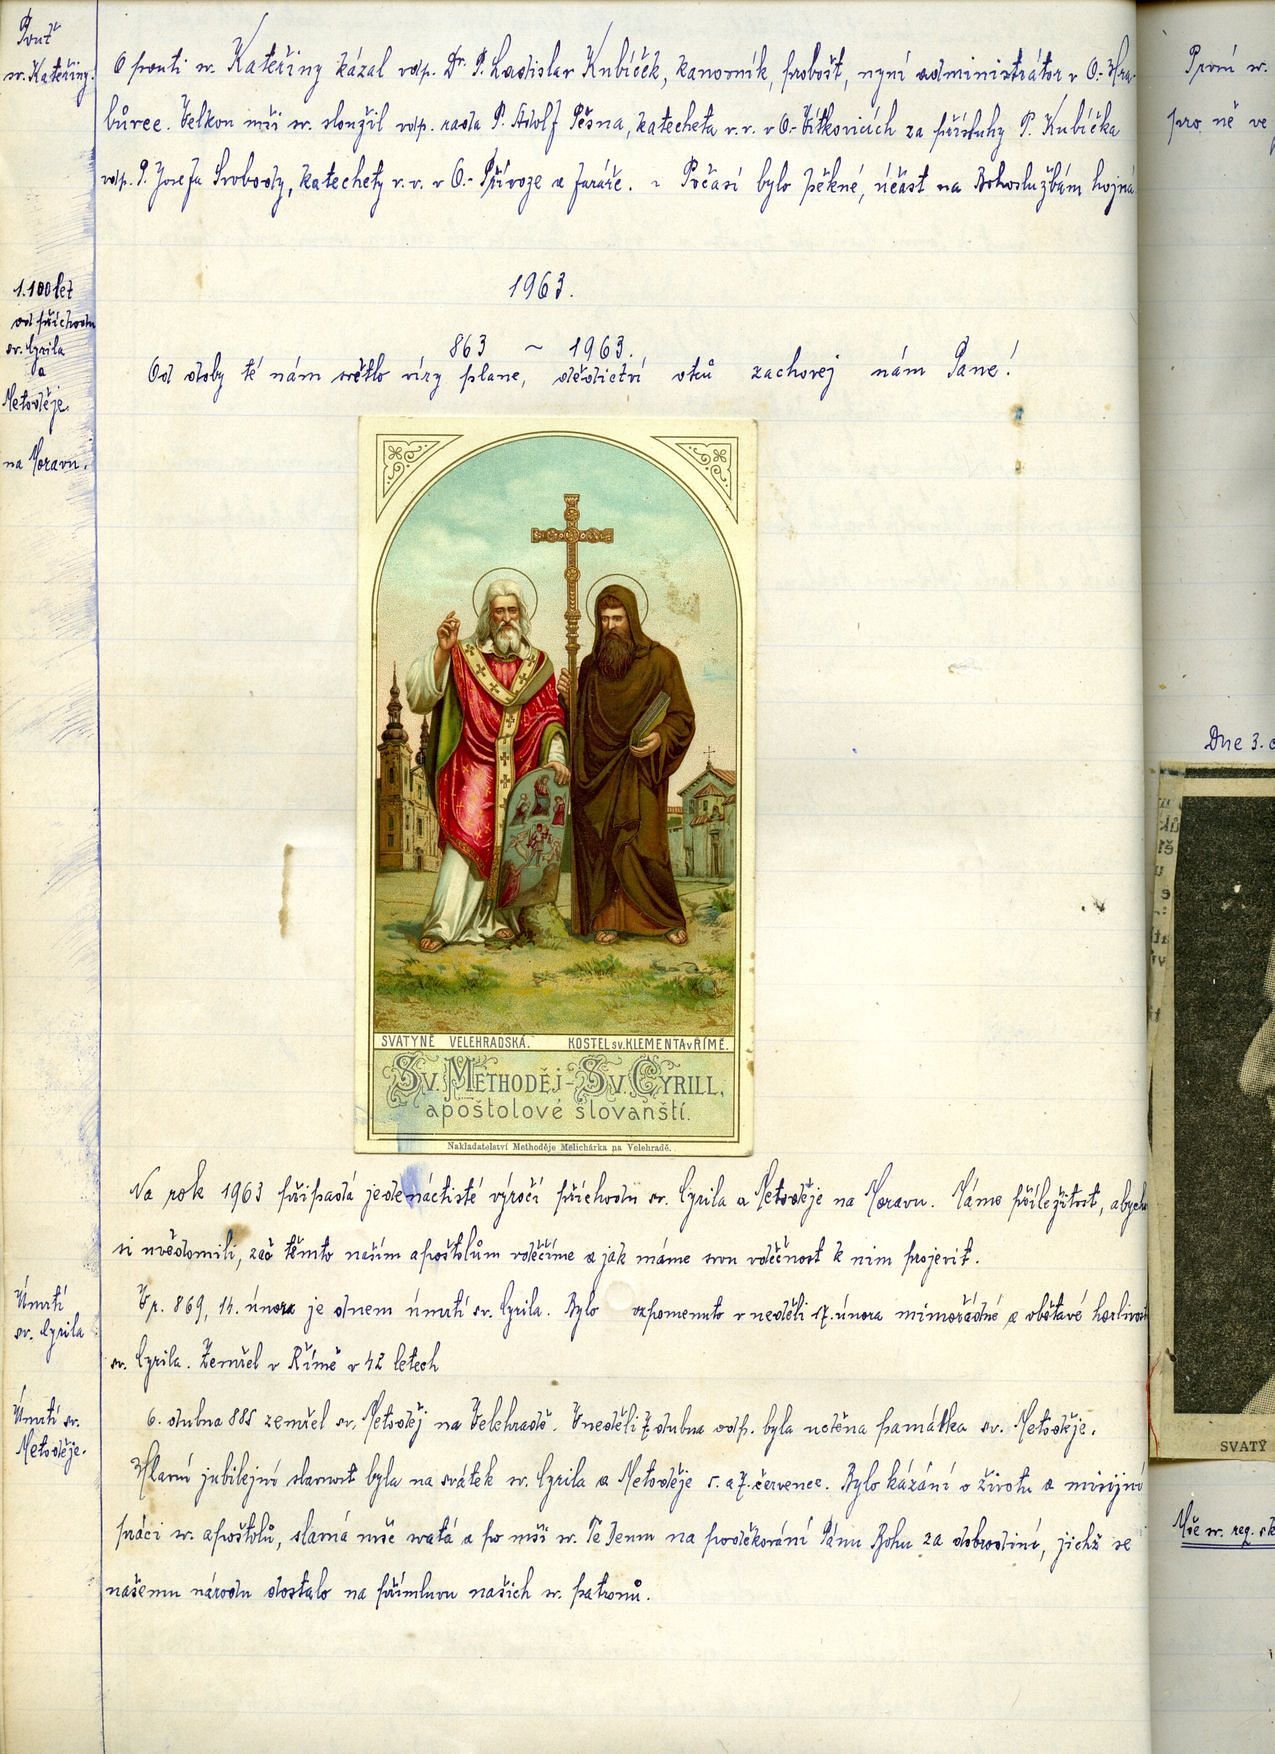 Pouť
sv. Kateřiny.
O pouti sv. Kateřiny kázal vdp. Dr. P. Ladislav Kubíček, kanovník, probošt, nyní administrátor v O.-Hra-
bůvce. Velkou mši sv. sloužil vdp. rada P. Adolf Pěšna, katecheta v.v. v O.-Vítkovicích za přísluhy P. Kubíčka
vdp. P. Josefa Svobody, katechety v.v. v O.-Přívoze a faráře. Počasí bylo pěkné, účast na Bohoslužbám hojná
1963.
1.100 let
od příchodu
sv. Cyrila
a
Metoděje
na Moravu.
863 ~ 1963.
Od doby té nám světlo víry plane, dědictví otců zachovej nám Pane!
SVATYNĚ VELEHRADSKÁ. KOSTEL sv. KLEMENTA v ŘÍMĚ.
Sv. Methoděj - Sv. Cyrill,
apoštolové slovanští.
Nakladatelství Methoděje Melichárka na Velehradě.
Na rok 1963 připadá jedenáctisté výročí příchodu sv. Cyrila a Metoděje na Moravu. Máme příležitost, abychom
si uvědomili, zač těmto našim apoštolům vděčíme a jak máme svou vděčnost k nim projevit.
Úmrtí
sv. Cyrila
V r. 869, 14. února je dnem úmrtí sv. Cyrila. Bylo vzpomenuto v neděli 17. února mimořádné a obětavé horlivosti
sv. Cyrila. Zemřel v Římě v 42 letech
Úmrtí sv.
Metoděje.
6. dubna 885 zemřel sv. Metoděj na Velehradě. V neděli 7. dubna odp. byla uctěna památka sv. Metoděje.
Hlavní jubilejní slavnost byla na svátek sv. Cyrila a Metoděje 5. a 7. července. Bylo kázání o životu a misijní
práci sv. apoštolů, slavná mše svatá a po mši sv. Te Deum na poděkování Pánu Bohu za dobrodiní, jichž se
našemu národu dostalo na přímluvu našich sv. patronů.
První sv.
pro ně ve
Dne 3.
SVATÝ
Mše sv. reg.